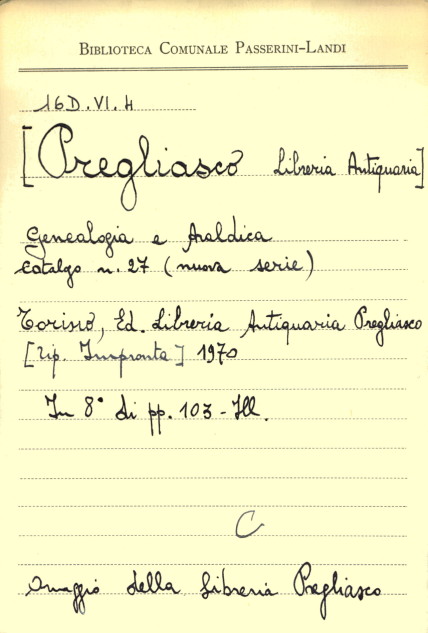 BIBLIOTECA COMUNALE PASSERINI-LANDI
16D.VI.4
[Pregliasco Libreria Antiquaria]
Genealogia e Araldica
Catalgo n. 27 (nuova serie)
Torino, Ed. Libreria Antiquaria Pregliasco
[Tip. Impronta] 1970
In 8° di pp. 103 - Ill.
C
Omaggio della Libreria Pregliasco